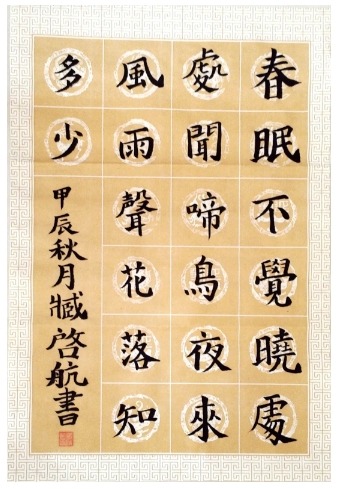 春眠不覺曉處
處聞啼鳥夜來
風雨聲花落知
多少
甲辰秋月臧啓航書